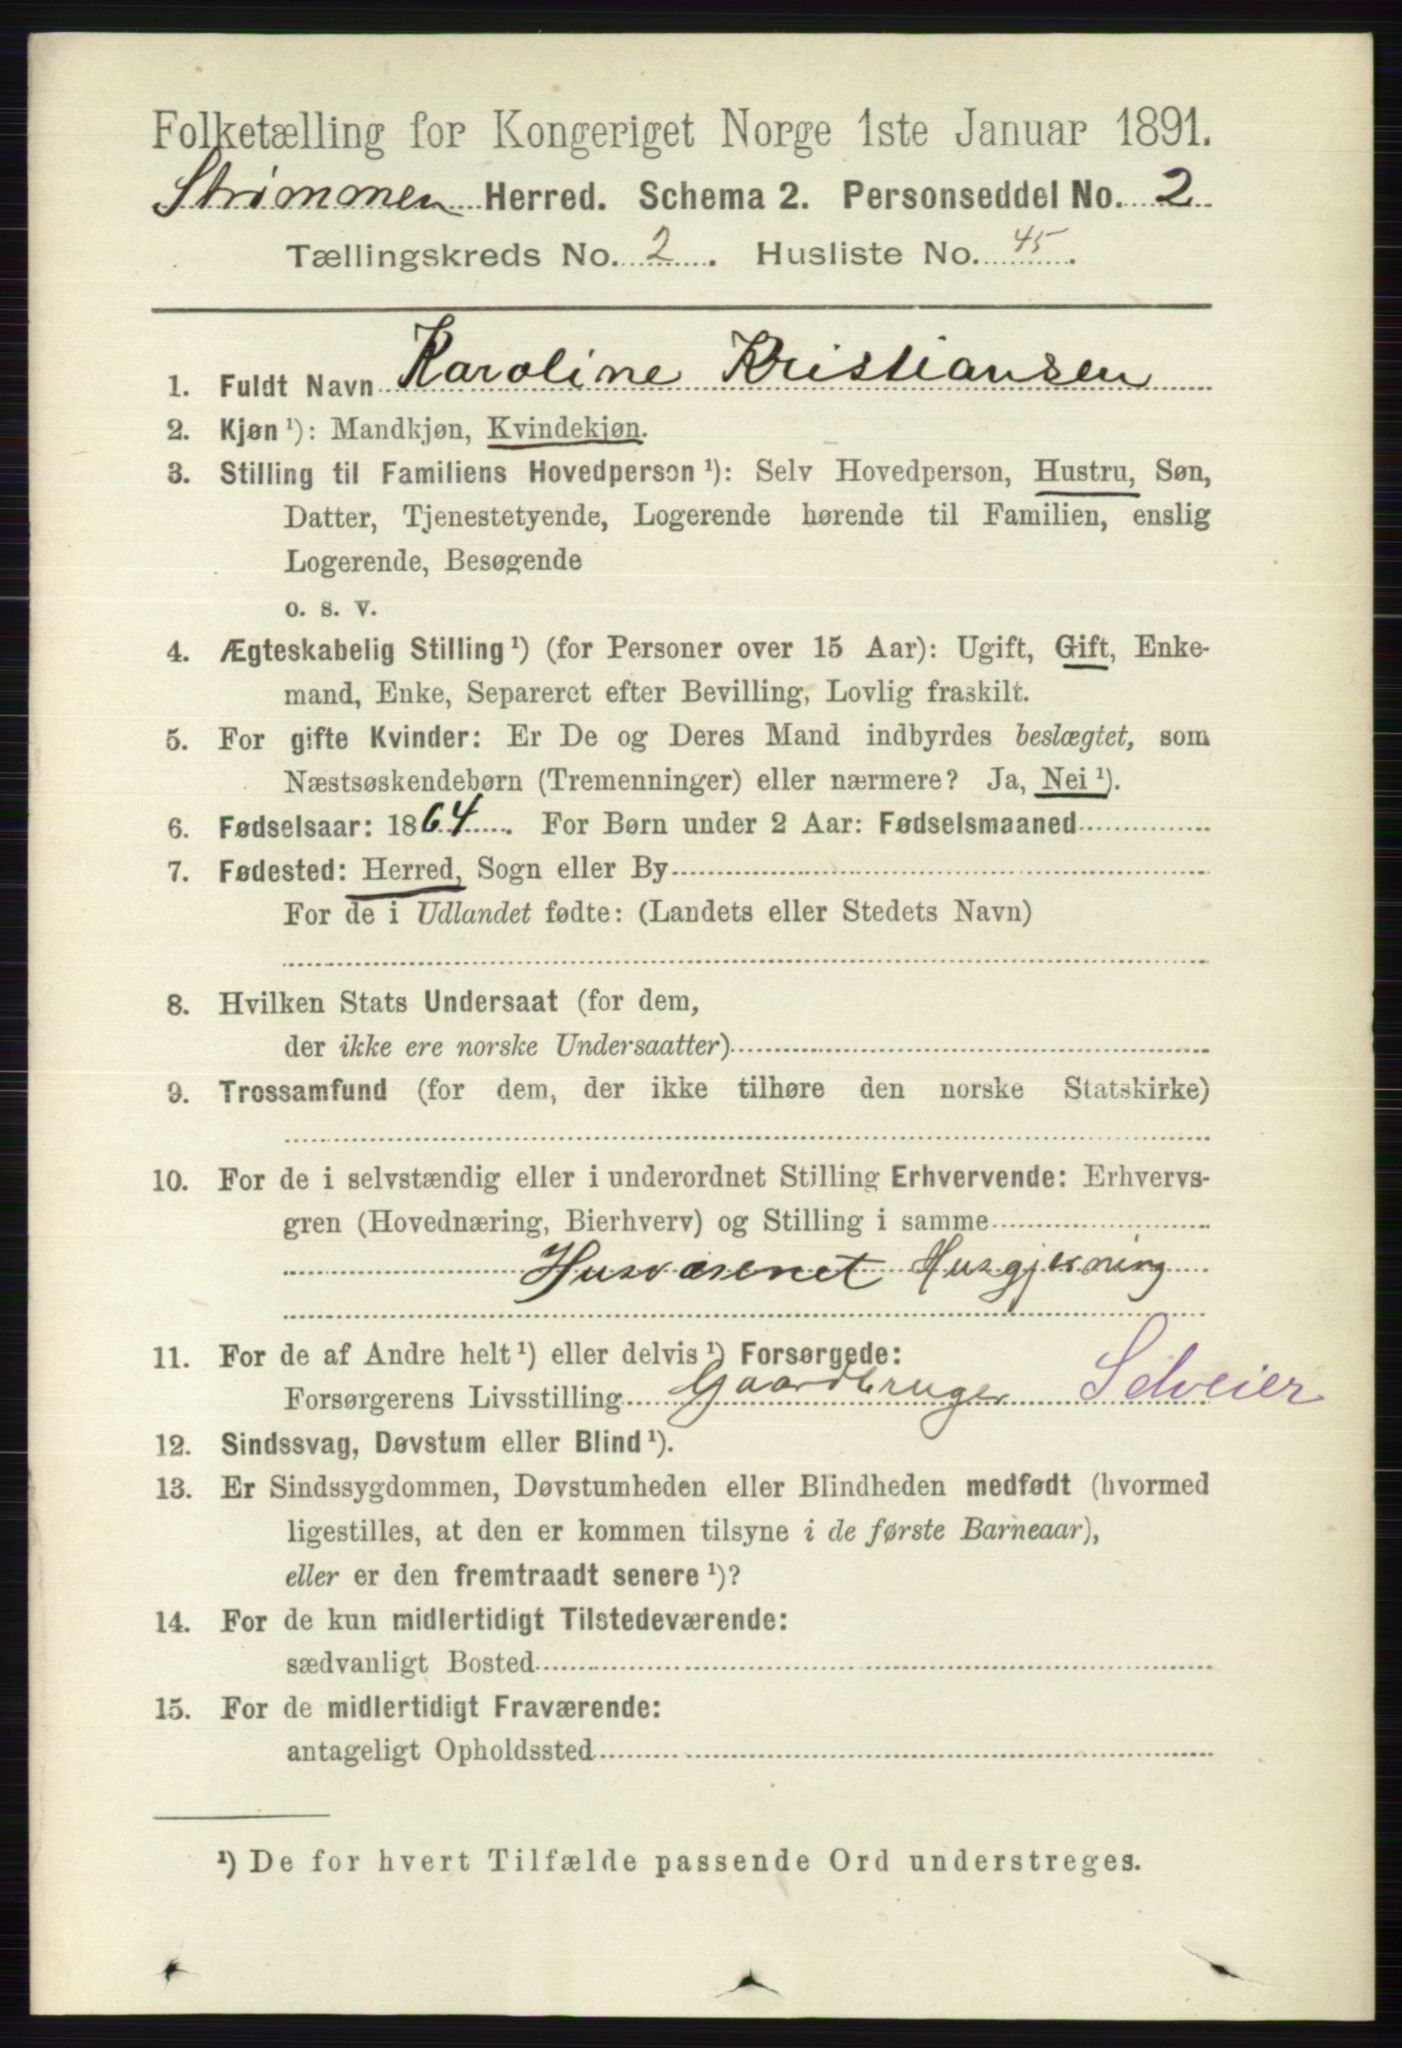 Folketælling for Kongeriget Norge 1ste Januar 1891.
Strømmen Herred. Schema 2. Personseddel No. 2
Tællingskreds No. 2. Husliste No. 45.
1. Fuldt Navn Karoline Kristiansen
2. Kjøn ¹): Mandkjøn, Kvindekjøn.
3. Stilling til Familiens Hovedperson ¹): Selv Hovedperson, Hustru, Søn,
Datter, Tjenestetyende, Logerende hørende til Familien, enslig
Logerende, Besøgende
o. s. v.
4. Ægteskabelig Stilling ¹) (for Personer over 15 Aar): Ugift, Gift, Enke-
mand, Enke, Separeret efter Bevilling, Lovlig fraskilt.
5. For gifte Kvinder: Er De og Deres Mand indbyrdes beslægtet, som
Næstsøskendebørn (Tremenninger) eller nærmere? Ja, Nei ¹).
6. Fødselsaar: 1864. For Børn under 2 Aar: Fødselsmaaned
7. Fødested: Herred, Sogn eller By
For de i Udlandet fødte: (Landets eller Stedets Navn)
8. Hvilken Stats Undersaat (for dem,
der ikke ere norske Undersaatter)
9. Trossamfund (for dem, der ikke tilhøre den norske Statskirke)
10. For de i selvstændig eller i underordnet Stilling Erhvervende: Erhvervs-
gren (Hovednæring, Bierhverv) og Stilling i samme
Husvæsenet Husgjerning
11. For de af Andre helt ¹) eller delvis ¹) Forsørgede:
Forsørgerens Livsstilling Gaardbruger Selveier
12. Sindssvag, Døvstum eller Blind ¹).
13. Er Sindssygdommen, Døvstumheden eller Blindheden medfødt (hvormed
ligestilles, at den er kommen tilsyne i de første Barneaar),
eller er den fremtraadt senere ¹)?
14. For de kun midlertidigt Tilstedeværende:
sædvanligt Bosted
15. For de midlertidigt Fraværende:
antageligt Opholdssted
¹) De for hvert Tilfælde passende Ord understreges.